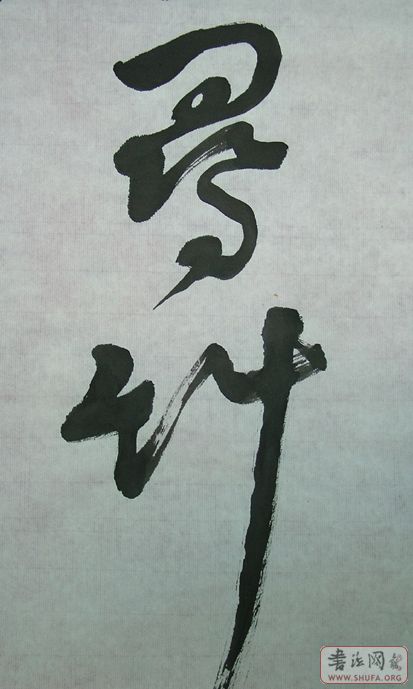 尋
竹
書法网
WWW.SHUFA.ORG